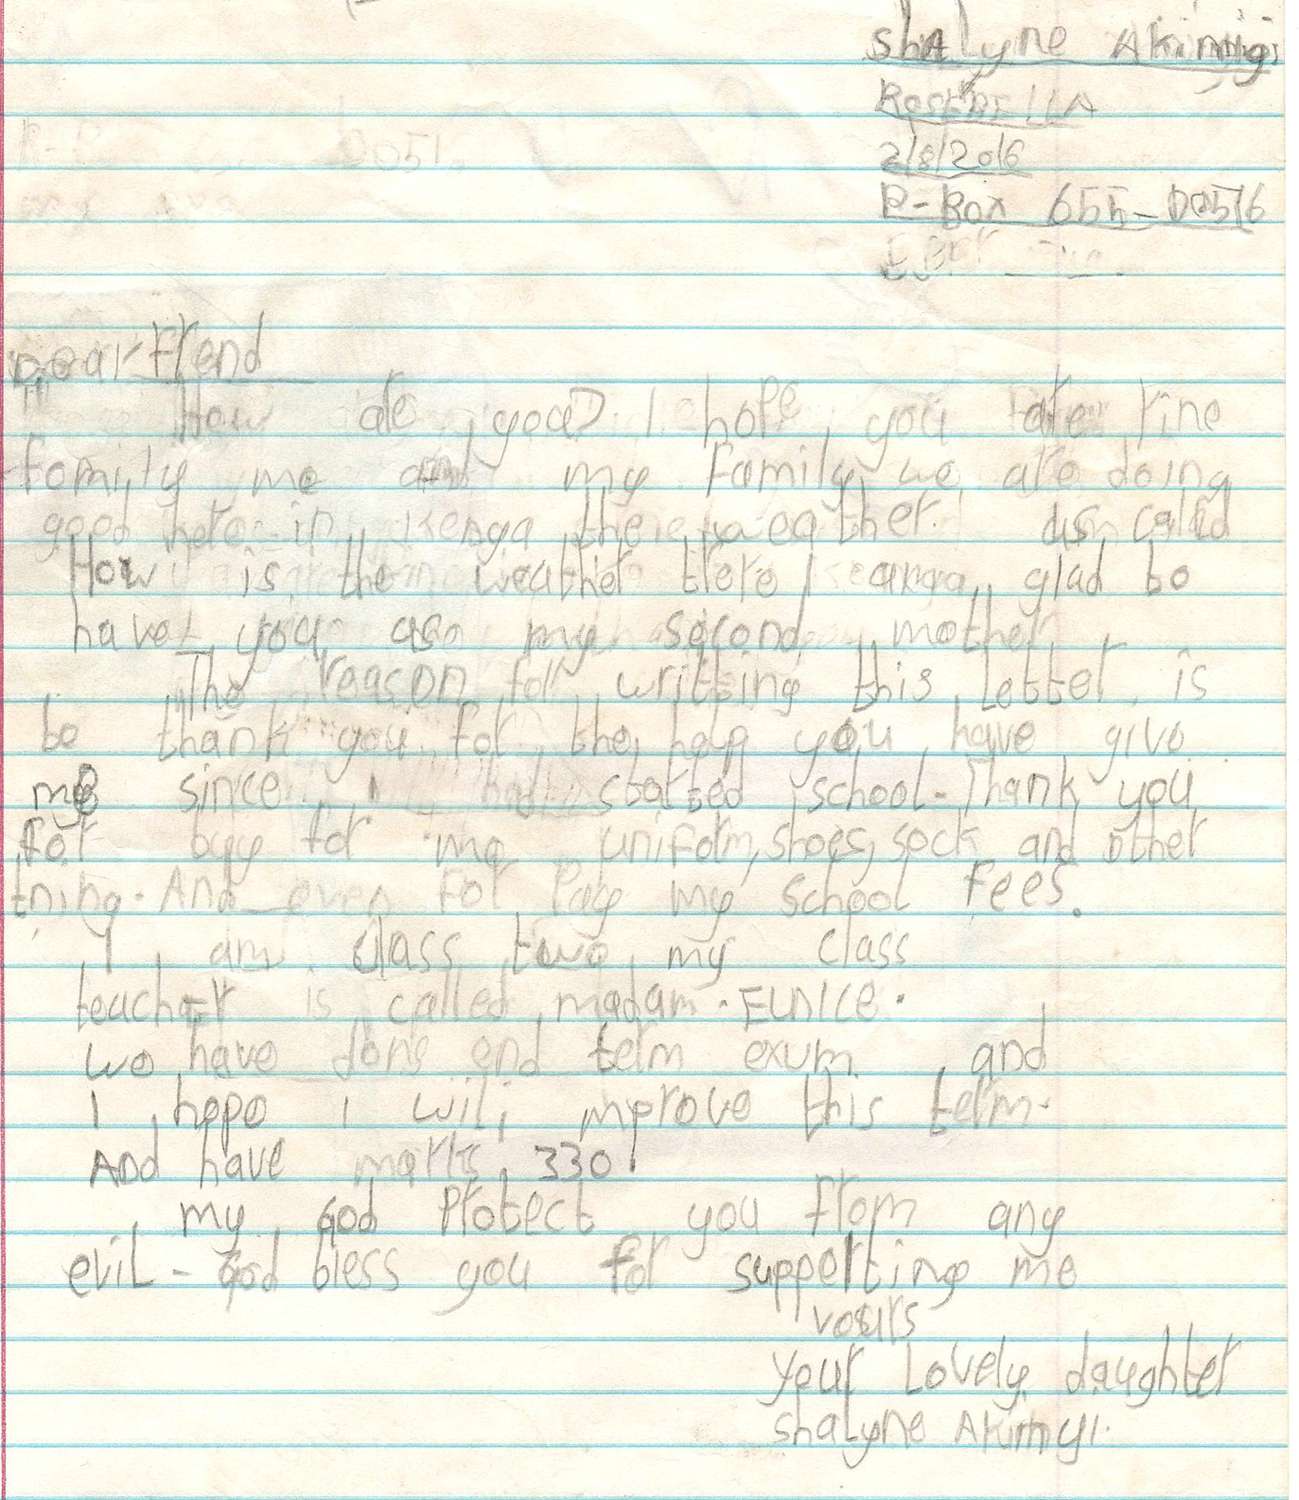 shalyne
ROSEBELLA
2/8/2016
P-Box 655-00516
Dear Friend
How are you? I hope you are Fine
Family me and my Family we are doing
good here in Kenya the weather is cold
How is the weather there I am glad to
have you as my second mother
The reason for writting this Letter is
to thank you for the help you have give
me since I started school- Thank you
For buy for me uniform, shoes, sock and other
thing. And even For Pay my school Fees.
I am class two my class
teacher is called madam. EUNICE.
we have done end term exum and
I hope I will improve this term.
AnD have marks 330
my God Protect you From any
evil - God bless you for supperting me
yours
your Lovely daughter
shalyne